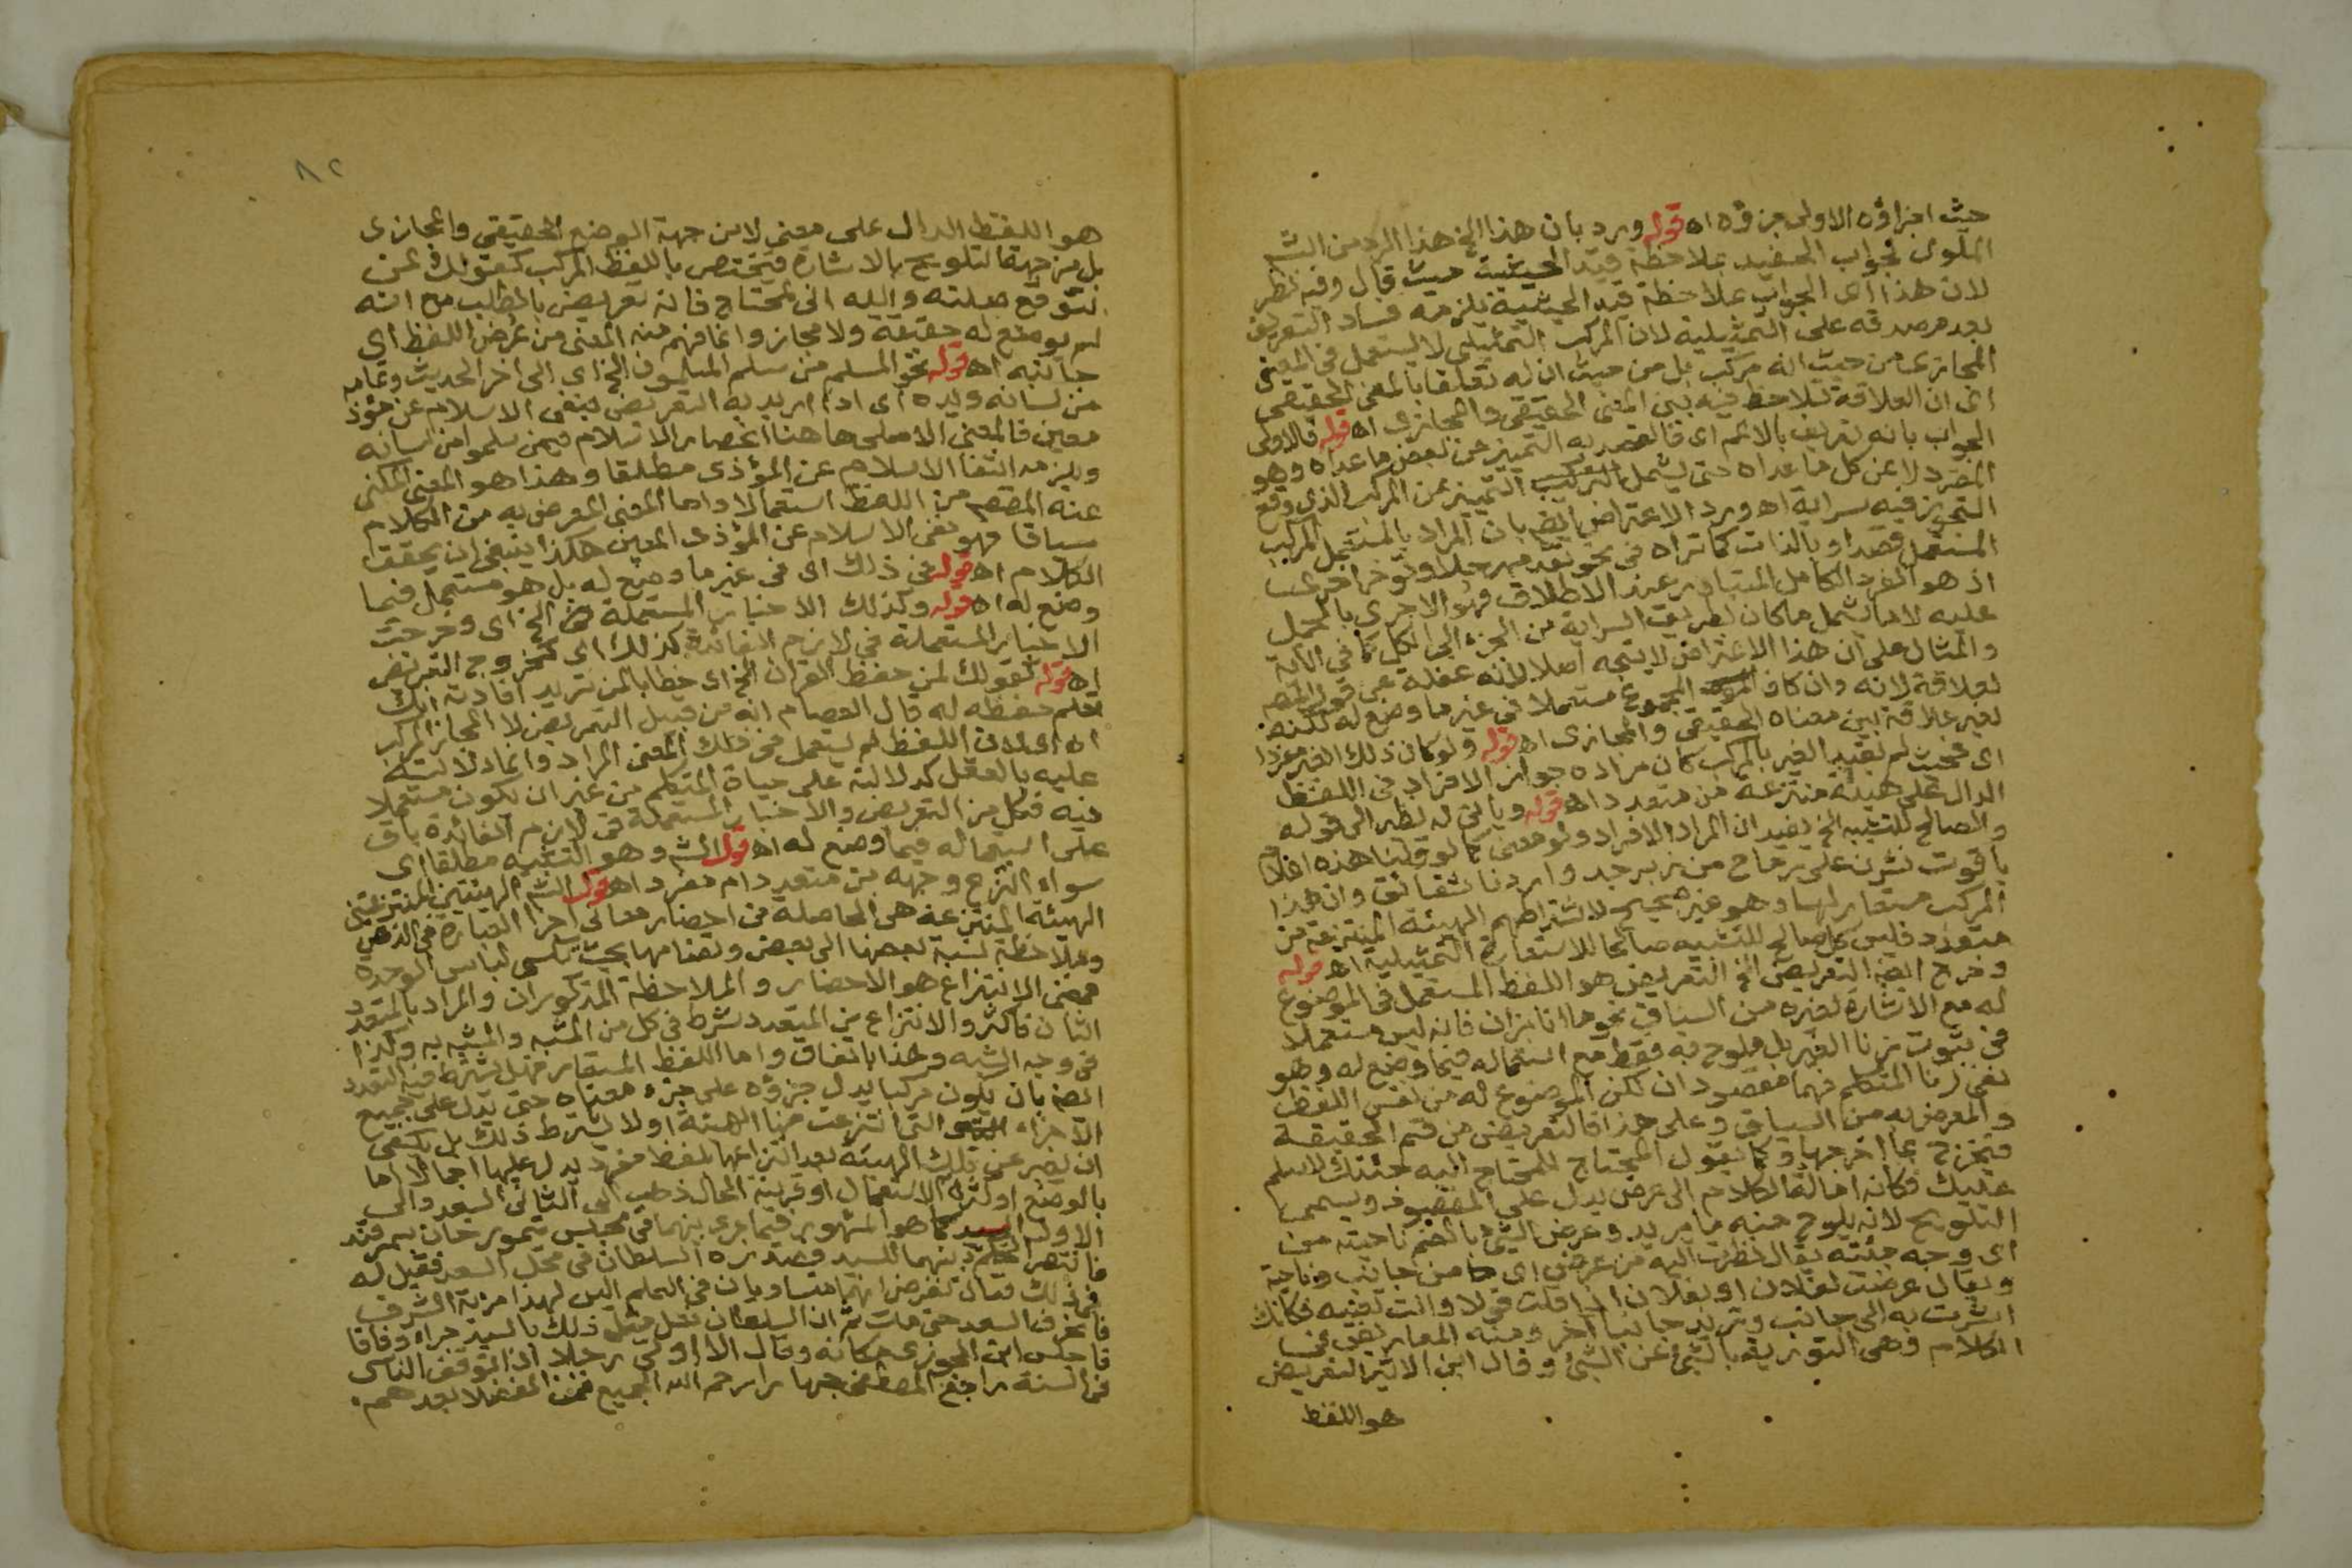 حيث اجزاؤه الاولى جزؤه اه قوله ورد بان هذا الخ هذا الرد من الشم
الملوى لجواب الحفيد بملاحظة قيد الحيثية حيث قال وفيه نظر
لان هذا اى الجواب بملاحظة قيد الحيثية يلزمه فساد التعريف
بعدم صدقه على التمثيلية لان المركب التمثيلى لا يستعمل فى المعنى
المجازى من حيث انه مركب بل من حيث ان له تعلقا بالمعنى الحقيقى
اى ان العلاقة تلاحظ فيه بين المعنى الحقيقى والمجازى اه قوله فالاولى
الجواب بانه تعريف بالاعم اى فالقصد به التمييز عن بعض ما عداه وهو
المفرد لا عن كل ما عداه حتى يشمل التمييز عن المركب الذى وقع
التجوز فيه سراية اه ورد الاعتراض ايضا بان المراد بالمستعمل المركب
المستعمل قصدا وبالذات كما تراه فى نحو تقدم رجلا وتؤخر اخرى
اذ هو الفرد الكامل المتبادر عند الاطلاق فهو الاحرى بالحمل
عليه لا ما يشمل ما كان بطريق السراية من الجزء الى الكل كما فى الآية
والمثال على ان هذا الاعتراض لا يتجه اصلا لانه غفلة عن قول المصم
لعلاقة لانه وان كان المجموع مستعملا فى غير ما وضع له لكنه
لغير علاقة بين معناه الحقيقى والمجازى اه قوله ولو كان ذلك الغير مفردا
اى فحيث لم يقيد الغير بالمركب كان مراده جواز الافراد فى اللفظ
الدال على هيئة منتزعة من متعدد اه قوله ويأتى له نظر الى قوله
والصالح للتشبيه الخ يفيد ان المراد الافراد ولو معنى كما لو قلنا هذه اعلام
ياقوت نشرن على رماح من زبرجد واردنا شقائق وان هذا
المركب مستعار لها وهو غير صحيح لاشتراطهم الهيئة المنتزعة من
متعدد فليس كل صالح للتشبيه صالحا للاستعارة التمثيلية اه قوله
وخرج ايضا التعريض الخ التعريض هو اللفظ المستعمل فى الموضوع
له مع الاشارة لغيره من السياق نحو ما انا بزان فانه ليس مستعملا
فى ثبوت زنا الغير بل ملوح به فقط مع استعماله فيما وضع له وهو
نفى زنا المتكلم فهما مقصودان لكن الموضوع له من نفس اللفظ
والمعرض به من السياق وعلى هذا فالتعريض من قسم الحقيقة
فتخرج بما اخرجها وكما يقول المحتاج للمحتاج اليه جئتك لاسلم
عليك فكانه امالة الكلام الى عرض يدل على المقصود ويسمى
التلويح لانه يلوح منه ما يريد وعرض الشئ بالضم ناحيته من
اى وجه جئته يقال نظرت اليه من عرض اى من جانب وناحية
ويقال عرضت لفلان او بفلان اذا قلت قولا وانت تعنيه فكانك
اشرت به الى جانب وتريد جانبا آخر ومنه المعاريض فى
الكلام وهى التورية بالشئ عن الشئ وقال ابن الاثير التعريض
هو اللفظ
٨٢
هو اللفظ الدال على معنى لا من جهة الوضع الحقيقى والمجازى
بل من جهة التلويح بالاشارة فيختص باللفظ المركب كقولك فى من
تتوقع صلته والله انى لمحتاج فانه تعريض بالطلب مع انه
لم يوضع له حقيقة ولا مجاز وانما فهم منه المعنى من عرض اللفظ اى
جانبه اه قوله نحو المسلم من سلم المسلمون الخ اى الى آخر الحديث وتمامه
من لسانه ويده اى اذا اريد به التعريض بنفى الاسلام عن مؤذ
معين فالمعنى الاصلى هاهنا انحصار الاسلام فيمن سلموا من لسانه
ويلزمه انتفاء الاسلام عن المؤذى مطلقا وهذا هو المعنى المكنى
عنه المقصم من اللفظ استعمالا واما المعنى المعرض به من الكلام
سياقا فهو نفى الاسلام عن المؤذى المعين هكذا ينبغى ان يحقق
الكلام اه قوله فى ذلك اى فى غير ما وضع له بل هو مستعمل فيما
وضع له اه قوله وكذلك الاخبار المستعملة الخ اى وخرجت
الاخبار المستعملة فى لازم الفائدة كذلك اى كخروج التعريض
اه قوله كقولك لمن حفظ القرآن الخ اى خطابا لمن تريد افادته انك
تعلم حفظه له قال العصام انه من قبيل التعريض لا المجاز المركب
اه اى لان اللفظ لم يستعمل فى ذلك المعنى المراد وانما دلالته
عليه بالعقل كدلالته على حياة المتكلم من غير ان يكون مستعملا
فيه فكل من التعريض والاخبار المستعملة فى لازم الفائدة باق
على استعماله فيما وضع له اه قول الشم وهو التشبيه مطلقا اى
سواء انتزع وجهه من متعدد ام مفرد اه قول الشم الهيئتين المنتزعتين
الهيئة المنتزعة هى الحاصلة من احضار معانى اجزاء العبارة فى الذهن
وملاحظة نسبة بعضها الى بعض وتضامها بحيث تكسى لباس الوحدة
فمعنى الانتزاع هو الاحضار والملاحظة المذكوران والمراد بالمتعدد
اثنان فاكثر والانتزاع من المتعدد شرط فى كل من المشبه والمشبه به وكذا
فى وجه الشبه وهذا باتفاق واما اللفظ المستعار فهل يشترط فيه التعدد
ايضا بان يكون مركبا يدل جزؤه على جزء معناه حتى يدل على جميع
الاجزاء التى انتزعت منها الهيئة او لا يشترط ذلك بل يكفى
ان يعبر عن تلك الهيئة بعد انتزاعها بلفظ مفرد يدل عليها اجمالا اما
بالوضع او كثرة الاستعمال او قرينة الحال ذهب الى الثانى السعد والى
الاول السيد كما هو المشهور فيما جرى بينهما فى مجلس تيمور خان بسمرقند
فانتصر الحكم بينهما للسيد فصدره السلطان فى محل السعد فقيل له
فى ذلك فقال نفرض انهما متساويان فى العلم اليس لهذا مزية الشرف
فاعترف السعد حتى مات ثم ان السلطان فعل مثل ذلك بالسيد جزاء وفاقا
فاجلس ابن الجزرى مكانه وقال الا اولى رجلا اذا توقف الناس
فى السنة راجع المصطفى جهارا رحم الله الجميع بعدهم